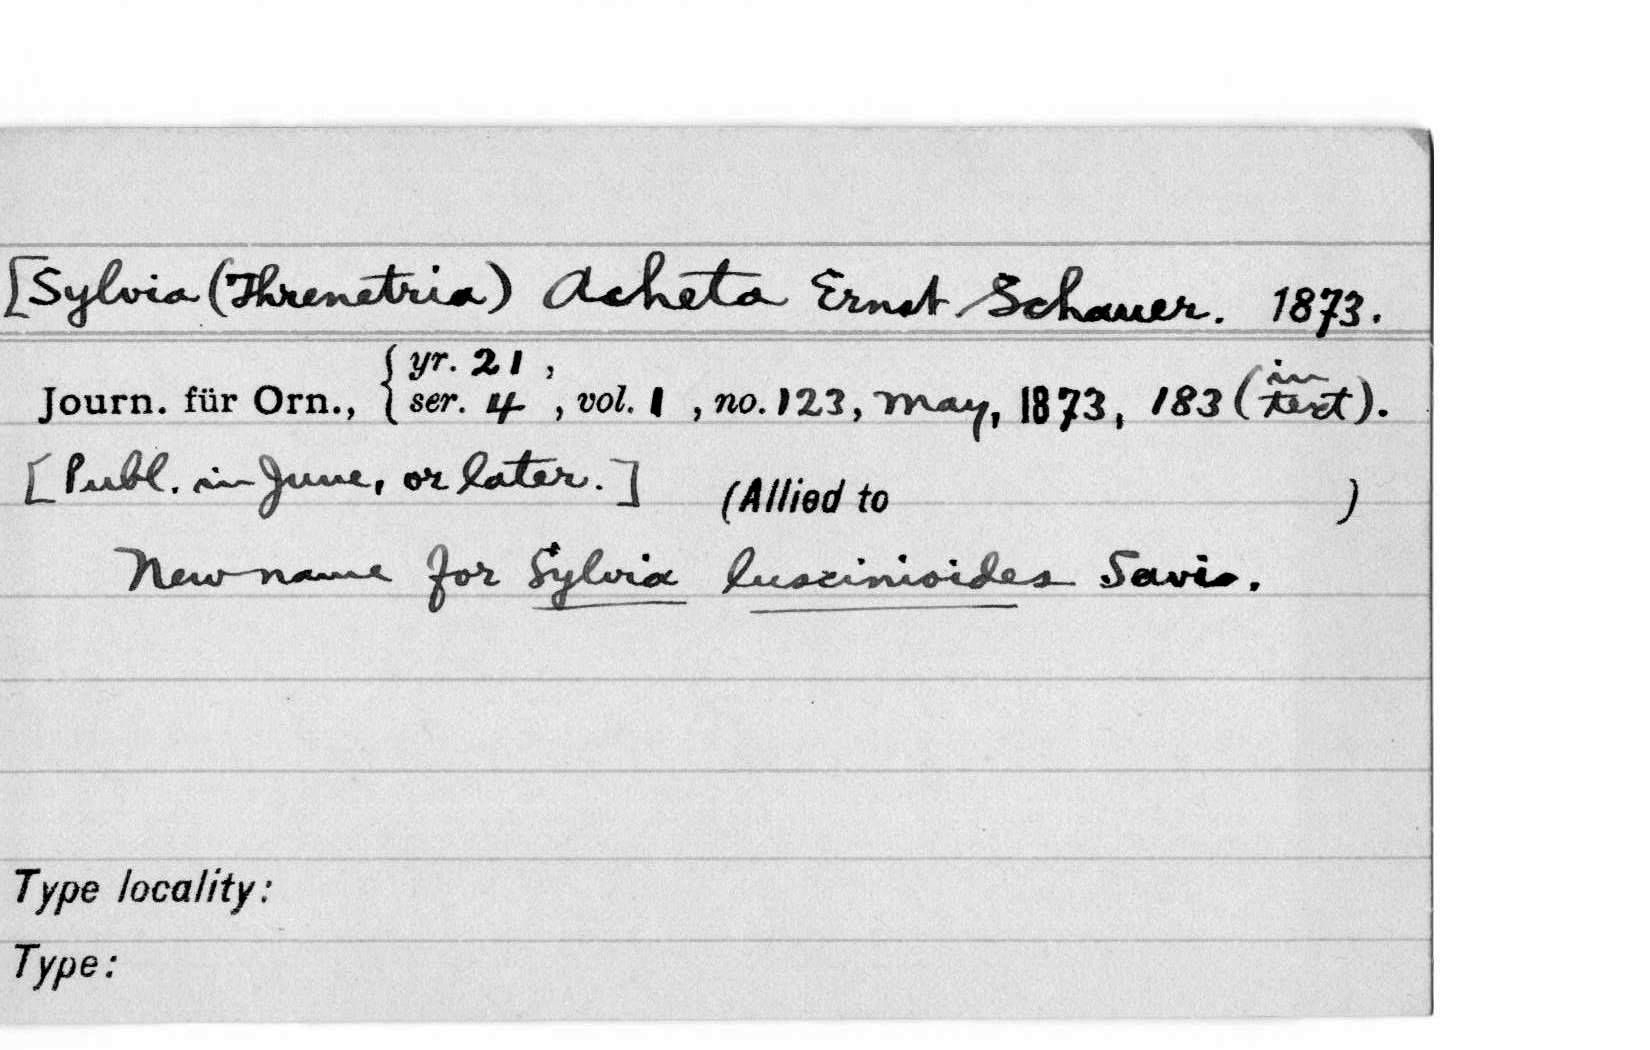 [Sylvia (Threnetria) Acheta Ernst Schauer. 1873.
Journ. für Orn., { yr. 21 , ser. 4 , vol. 1 , no. 123, May, 1873, 183 (in text).
[Publ. in June, or later.] (Allied to )
New name for Sylvia luscinioides Savi.
Type locality:
Type: